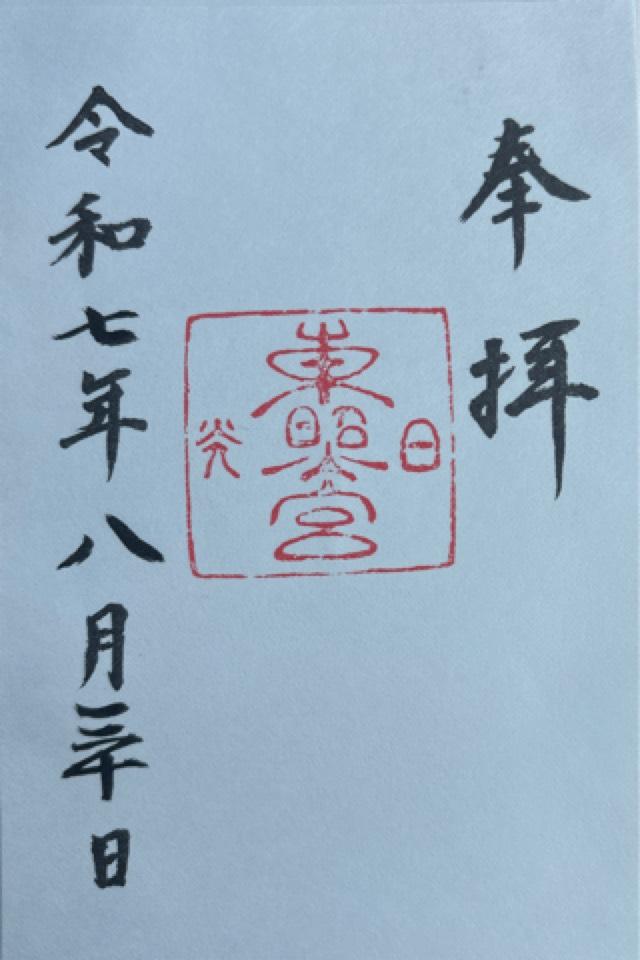 奉拝
日光
東照宮
令和七年八月三十日